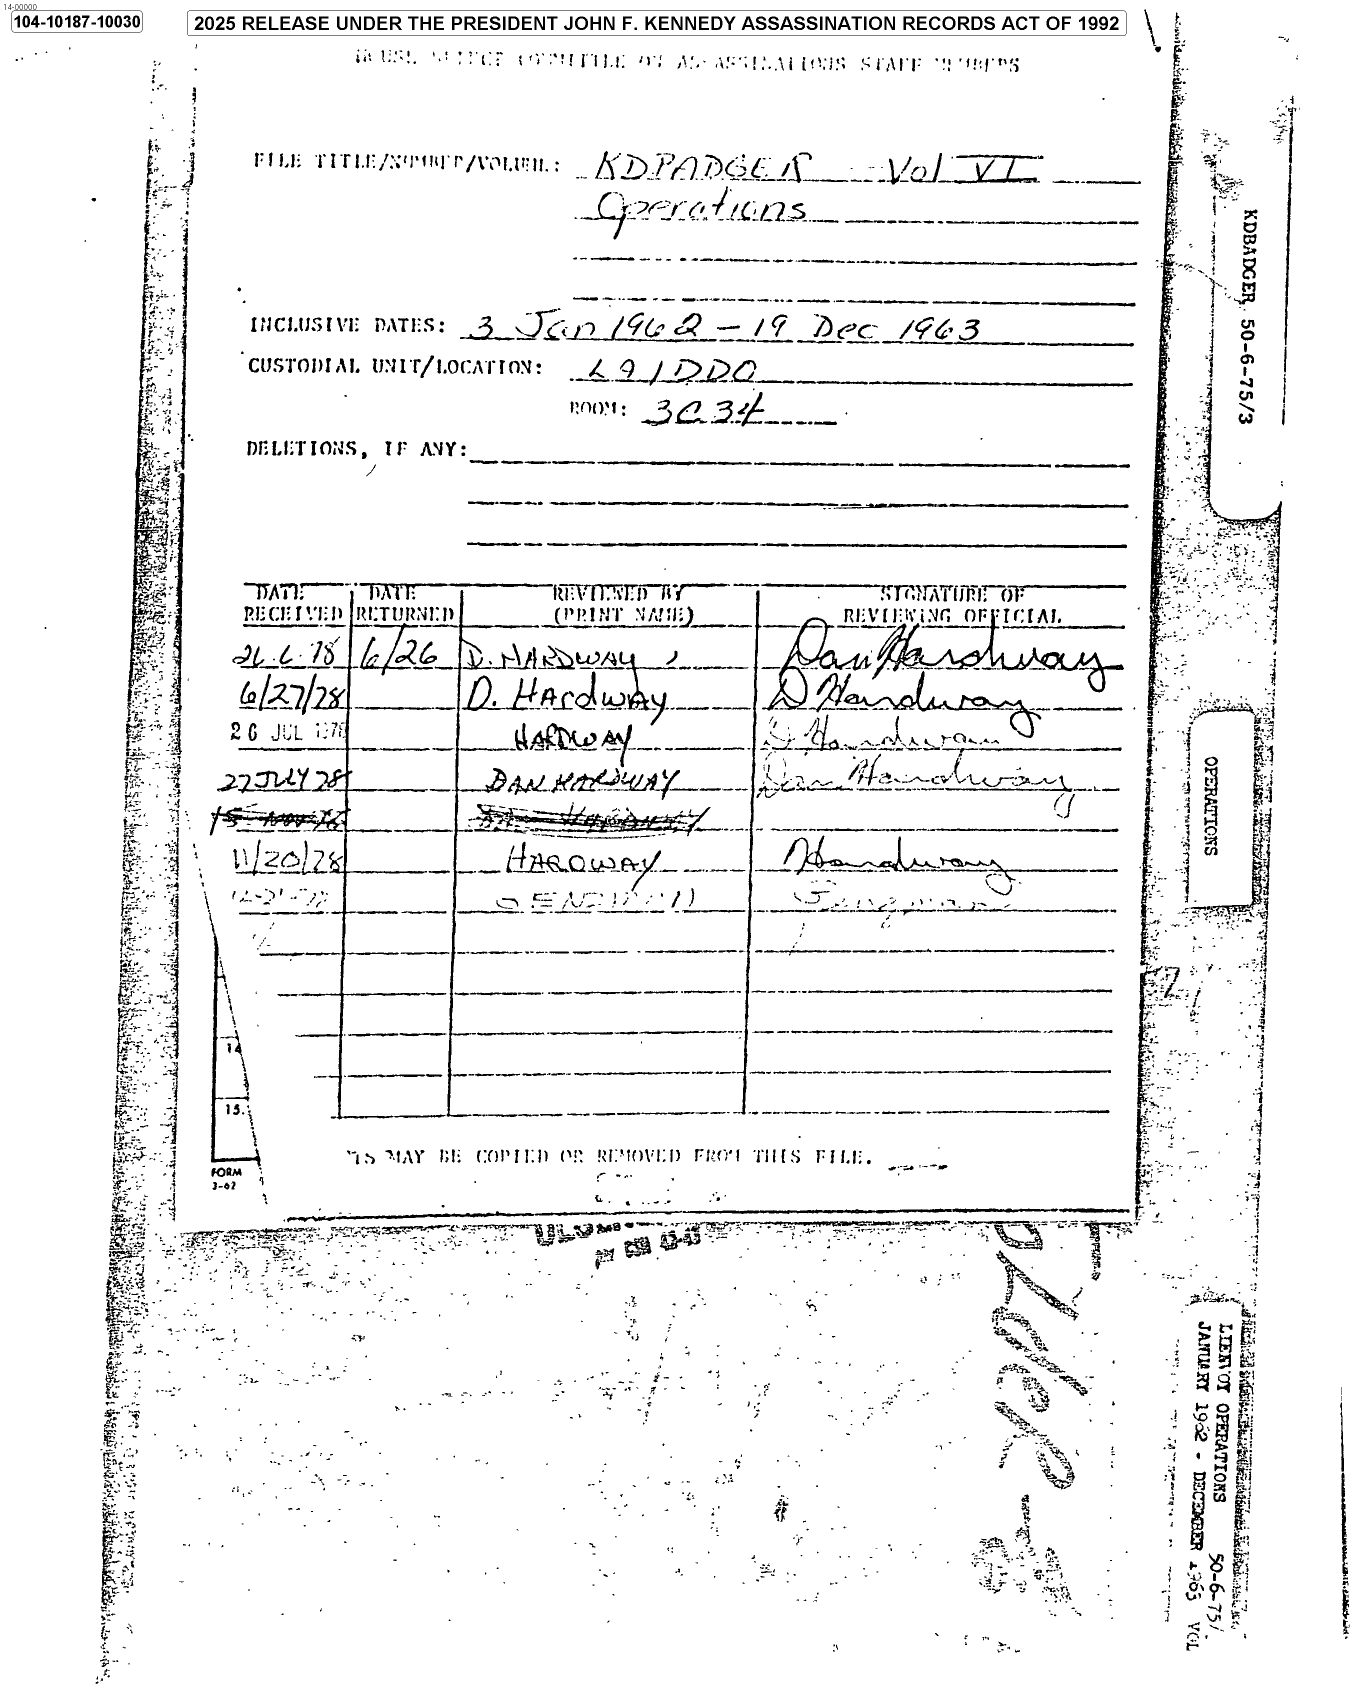 14-00000
104-10187-10030
2025 RELEASE UNDER THE PRESIDENT JOHN F. KENNEDY ASSASSINATION RECORDS ACT OF 1992
STAFF MEMBERS
FILE TITLE/NUMBER/VOLUME: KDBADGER Vol VI
Operations
INCLUSIVE DATES: 3 Jan 1962 - 19 Dec 1963
CUSTODIAL UNIT/LOCATION: LA/DDO
ROOM: 3C34
DELETIONS, IF ANY:
DATE RECEIVED DATE RETURNED REVIEWED BY (PRINT NAME) SIGNATURE OF REVIEWING OFFICIAL
6/26 D. HARDWAY Dan Hardway
6/27/78 D. HARdWAY D Hardway
26 JUL 1978 HARDWAY D Hardway
27 JULY 78 DAN HARDWAY Dan Hardway
11/20/78 HARDWAY Hardway
14
15.
FORM
3-62
MAY BE COPIED OR REMOVED FROM THIS FILE.
KDBADGER 50-6-75/3
OPERATIONS
LIENVOY OPERATIONS 50-6-75/
JANUARY 1962 - DECEMBER 1963 VOL